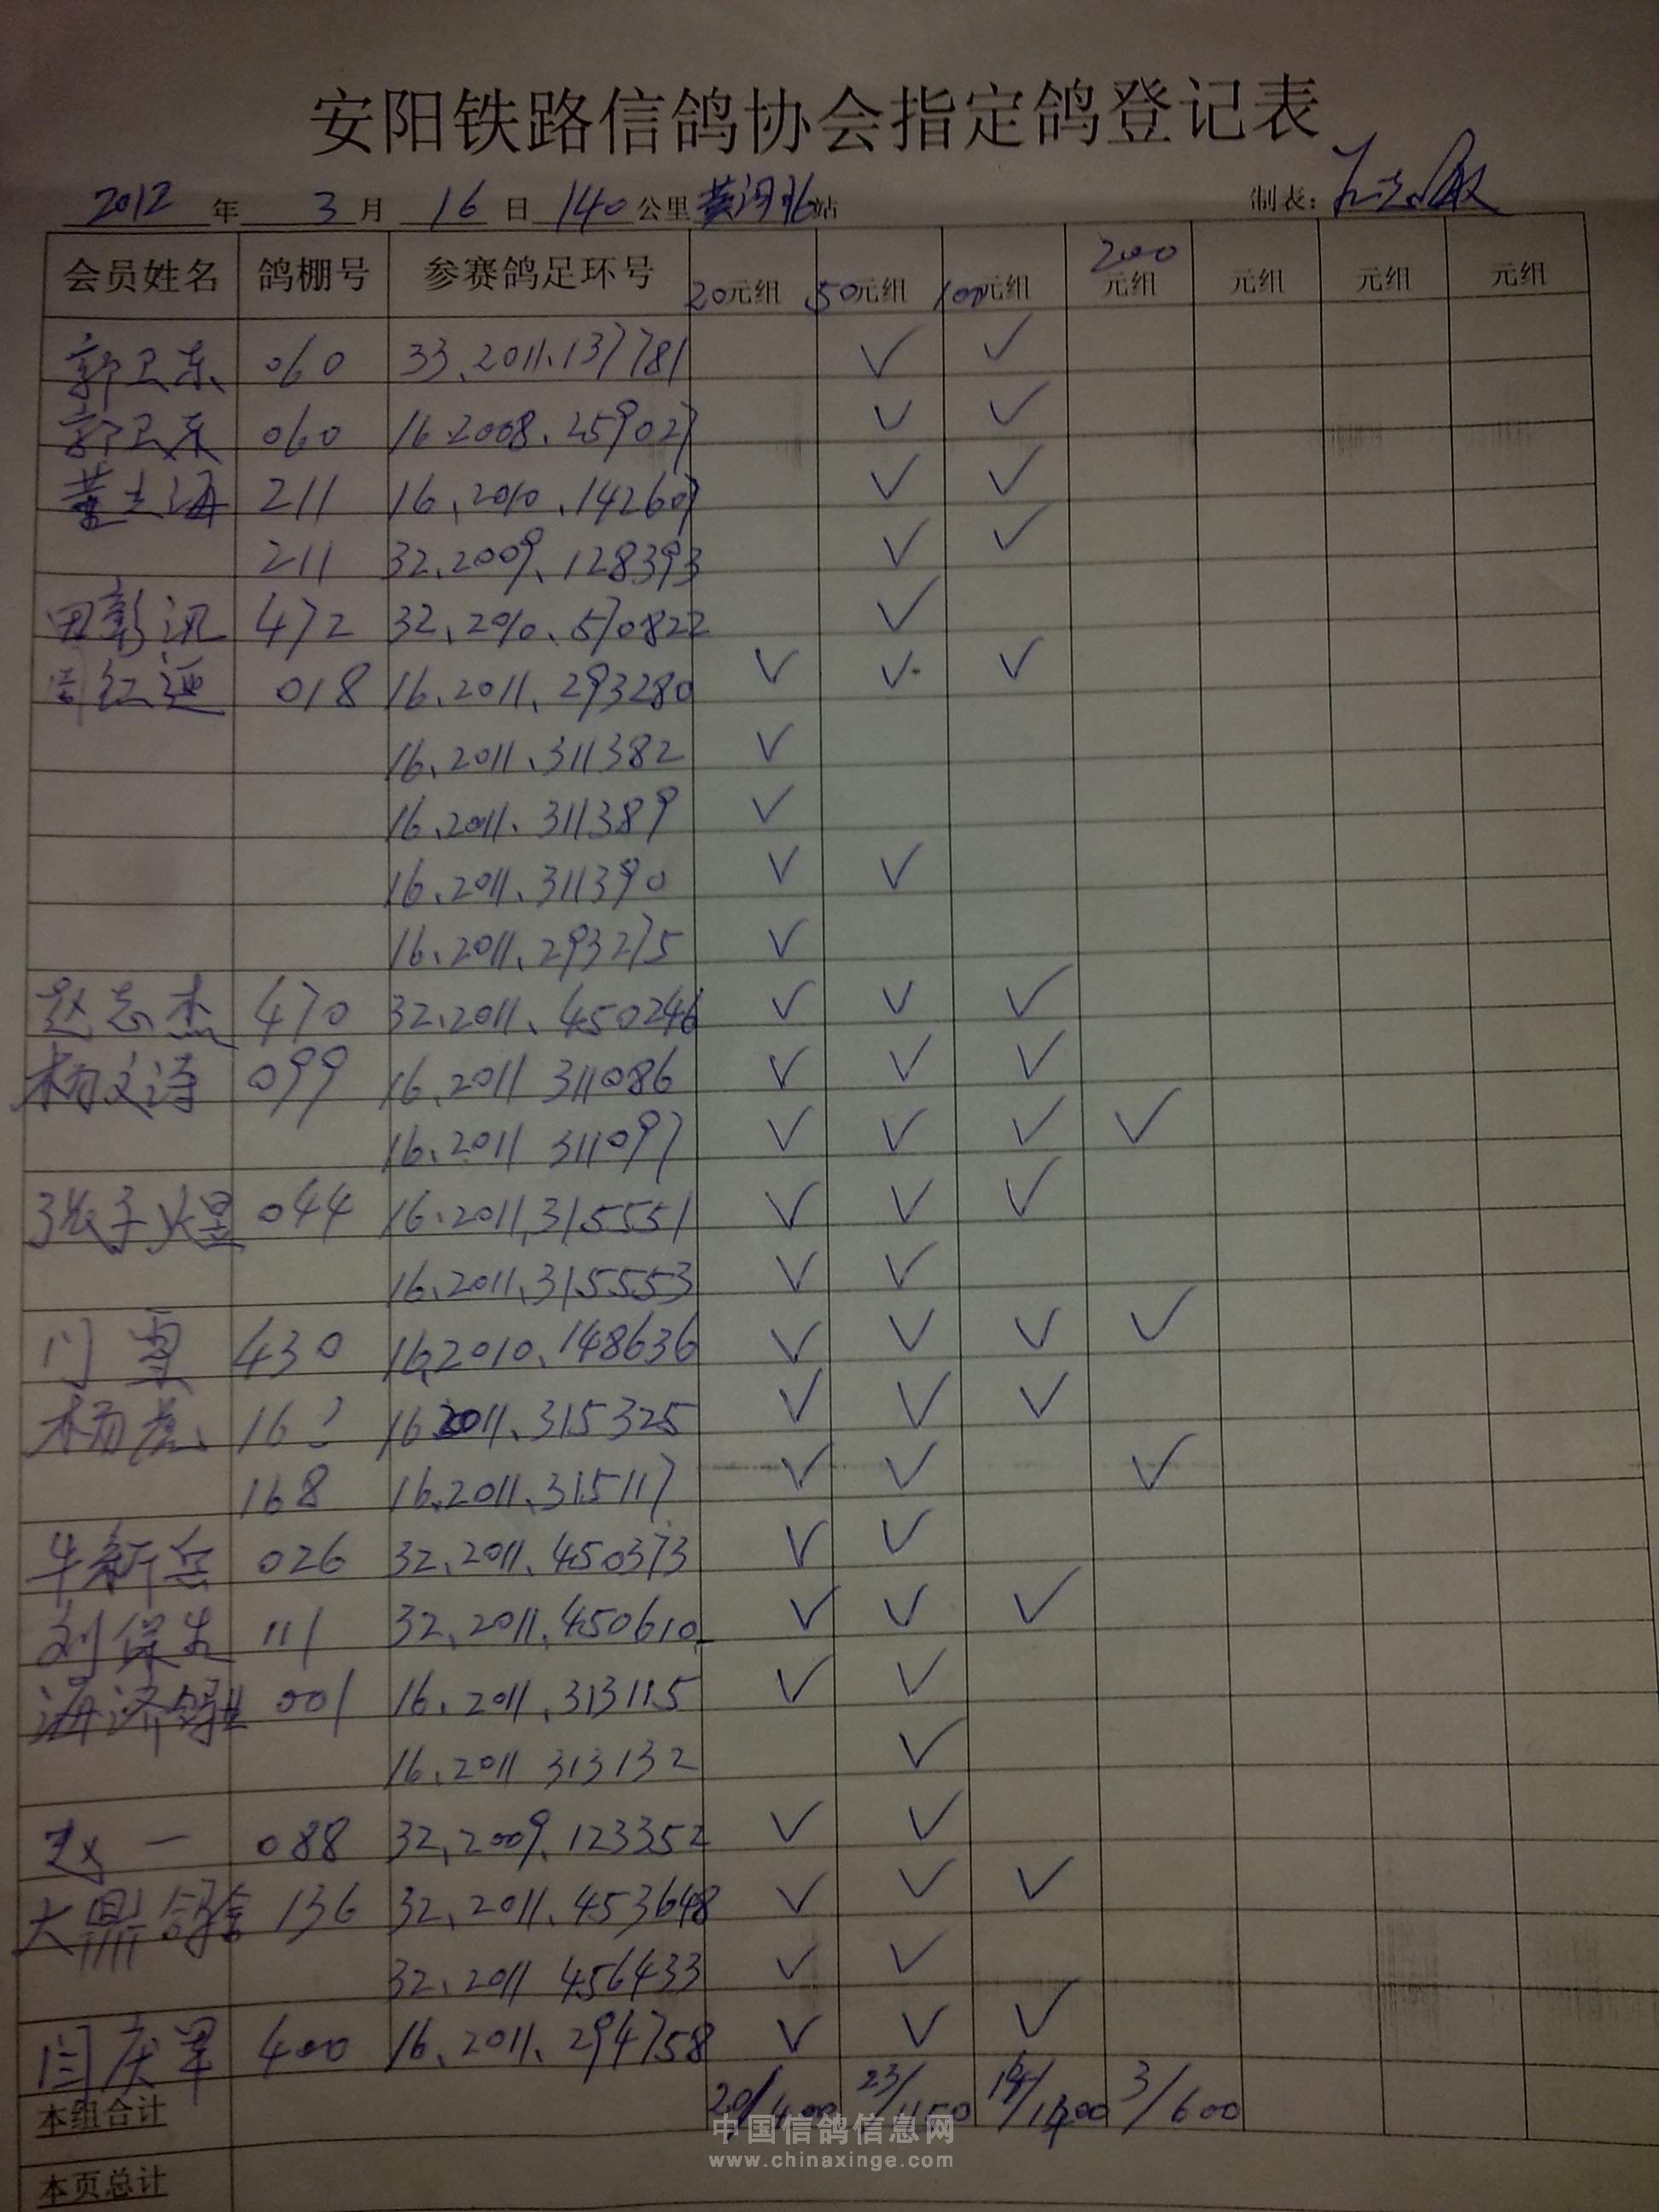 安阳铁路信鸽协会指定鸽登记表
2012 年 3 月 16 日 140 公里 黄河北站 制表：
会员姓名 鸽棚号 参赛鸽足环号 20元组 50元组 100元组 200元组 元组 元组 元组
郭卫东 060 33.2011.137781 ✓ ✓
郭卫东 060 16.2008.259027 ✓ ✓
黄志海 211 16.2010.142607 ✓ ✓
211 32.2009.128393 ✓ ✓
田彰汎 472 32.2010.570822 ✓
018 16.2011.293280 ✓ ✓ ✓
16.2011.311382 ✓
16.2011.311389 ✓
16.2011.311390 ✓ ✓
16.2011.293275 ✓
赵志杰 470 32.2011.450246 ✓ ✓ ✓
杨文涛 099 16.2011 311086 ✓ ✓ ✓
16.2011 311097 ✓ ✓ ✓ ✓
张子煜 044 16.2011.315551 ✓ ✓ ✓
16.2011.315553 ✓ ✓
门雷 430 16.2010.148636 ✓ ✓ ✓ ✓
杨 16 16.2011.315325 ✓ ✓ ✓
168 16.2011.315117 ✓ ✓ ✓
牛新岳 026 32.2011.450373 ✓ ✓
刘保 111 32.2011.450610 ✓ ✓ ✓
海济鸽业 001 16.2011.313115 ✓ ✓
16.2011 313132 ✓
赵一 088 32.2009.123352 ✓ ✓
大鼎鸽舍 136 32.2011.453648 ✓ ✓ ✓
32.2011 456433 ✓ ✓
闫庆军 400 16.2011.294758 ✓ ✓ ✓
本组合计 20/400 23/1150 14/1400 3/600
本页总计
中国信鸽信息网
www.chinaxinge.com